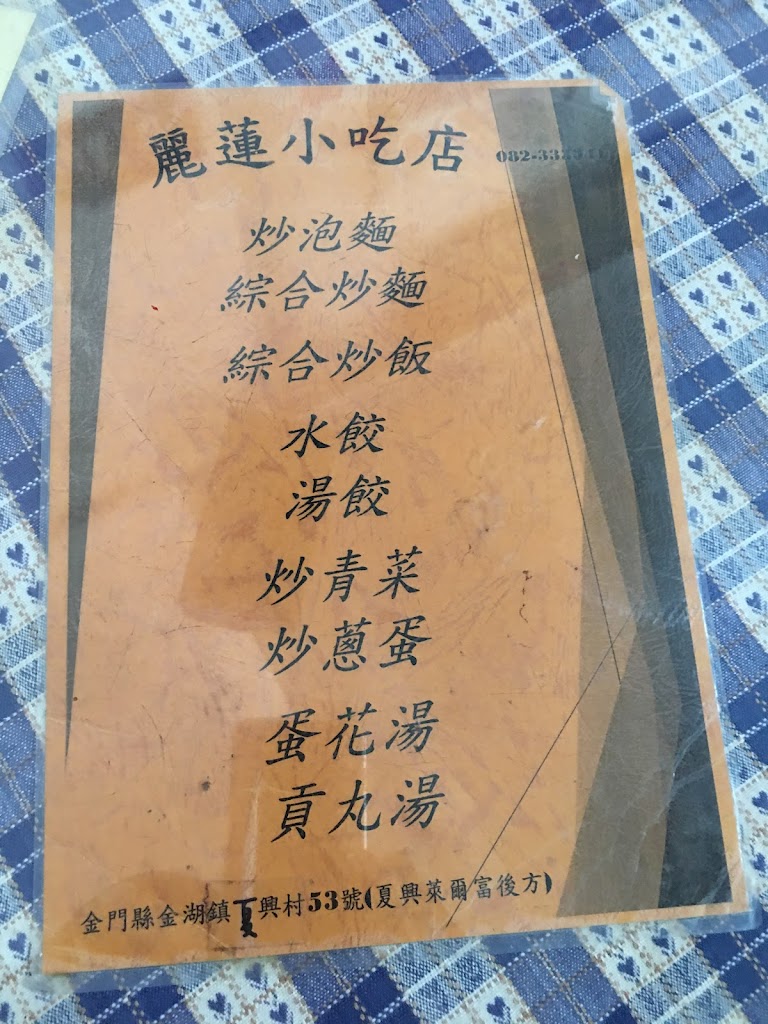 麗蓮小吃店
炒泡麵
綜合炒麵
綜合炒飯
水餃
湯餃
炒青菜
炒蔥蛋
蛋花湯
貢丸湯
金門縣金湖鎮夏興村53號(夏興萊爾富後方)